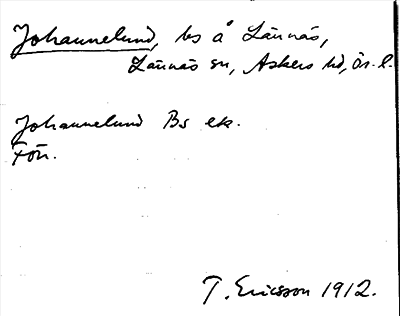 Johannelund, bs å Lännäs,
Lännäs sn, Askers hd, Ör. l.
Johannelund Bs ek.
Förr.
T. Ericsson 1912.